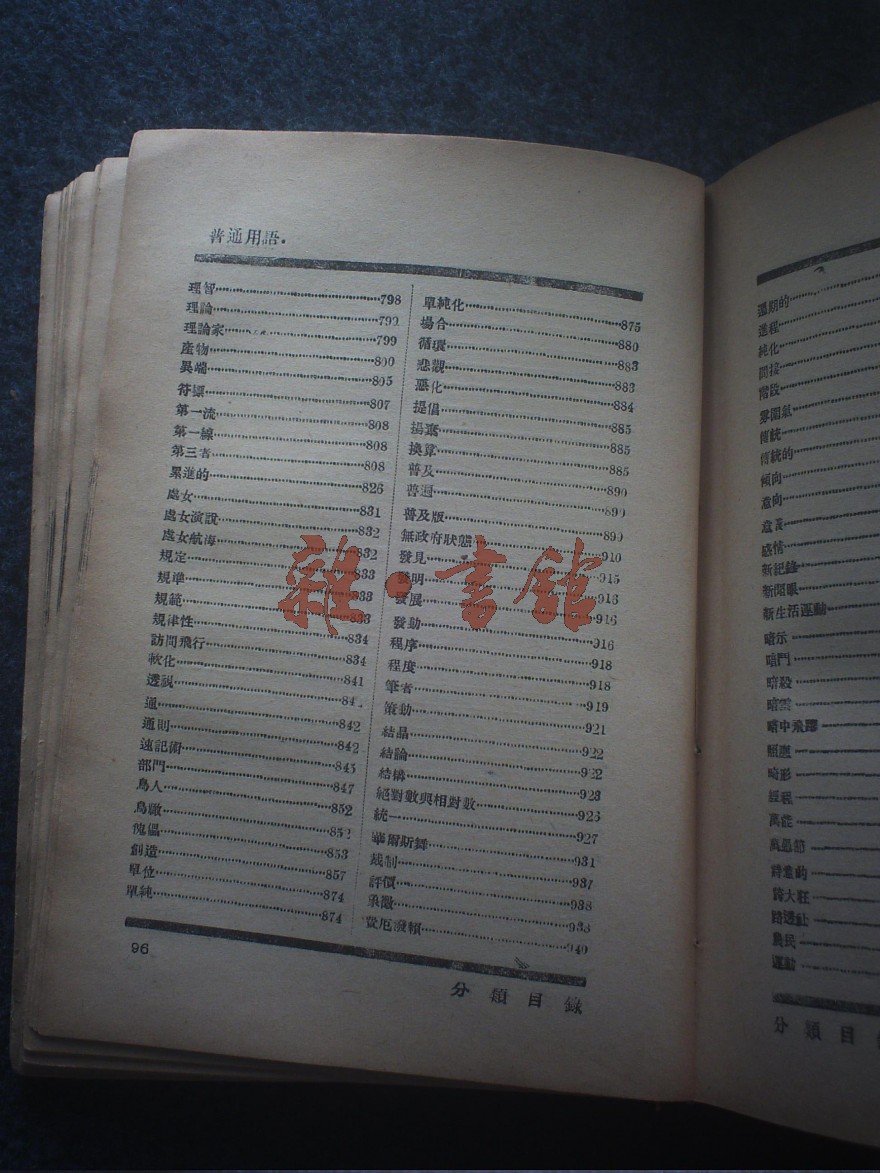 普通用語.
理智 798
理論 799
理論家 799
產物 800
異端 805
符號 807
第一流 808
第一線 808
第三者 808
累進的 826
處女 831
處女演說 832
處女航海 832
規定 833
規準 833
規範 833
規律性 834
訪問飛行 834
軟化 841
透視
通 842
通則 842
速記術 845
部門 847
鳥人 852
鳥瞰 852
傀儡 853
創造 857
單位 874
單純 874
單純化 875
場合 880
循環 883
悲觀 883
惡化 884
提倡 885
揚棄 885
換算 885
普及 890
普遍 890
普及版 890
無政府狀態 910
發見 915
發明 916
發展 916
發動 916
程序 918
程度 918
筆者 919
策動 921
結晶 922
結論 922
結構 923
絕對數與相對數 923
統一 927
華爾斯舞 931
裁制 937
評價 938
象徵 938
貲厄發賴 940
96
分類目錄
雜·書館
過期的
進程
純化
間接
階段
雰圍氣
傳統
傳統的
傾向
意向
意義
感情
新紀錄
新聞眼
新生活運動
暗示
暗鬥
暗殺
暗雲
暗中飛躍
照應
畸形
經程
萬能
萬愚節
誇大狂
路透社
農民
運動
分類目